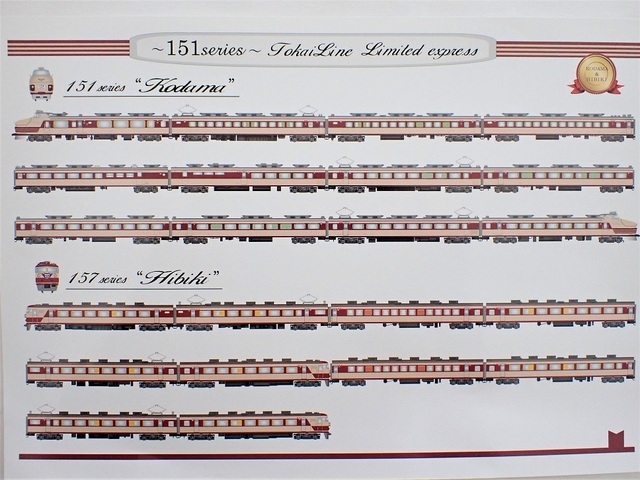 ~151series~ TokaiLine Limited express
KODAMA
&
HIBIKI
151 series "Kodama"
157 series "Hibiki"